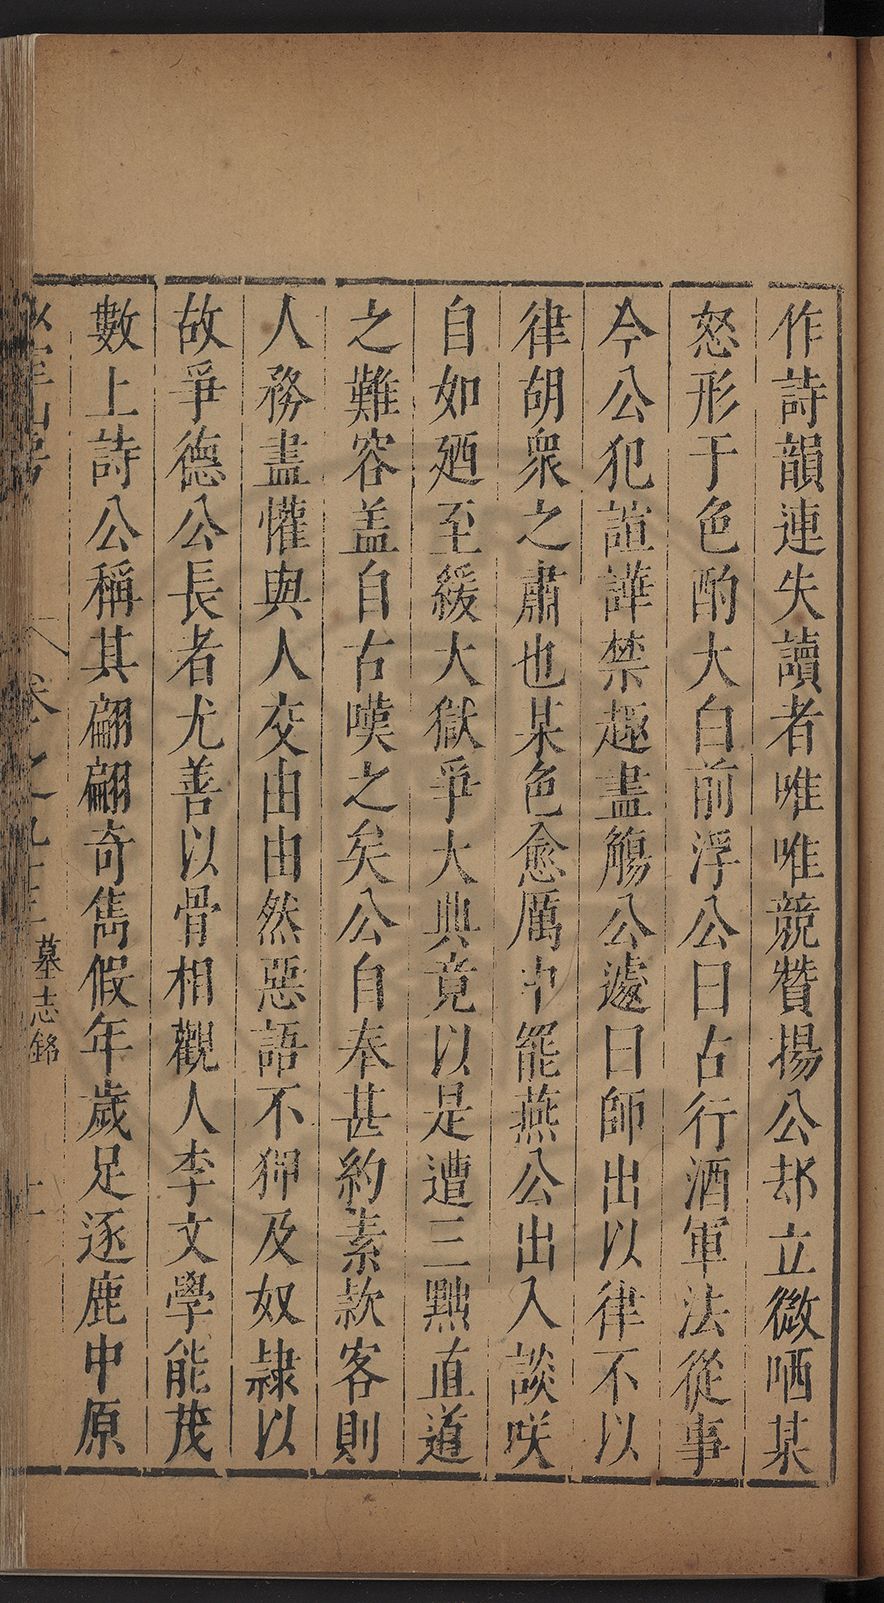 作詩韻連失讀者唯唯競贊揚公却立微哂某
怒形于色酌大白前浮公曰古行酒軍法從事
今公犯諠譁禁趣盡觴公遽曰師出以律不以
律胡衆之肅也某色愈厲中罷燕公出入談咲
自如廼至緩大獄爭大典竟以是遭三黜直道
之難容盖自古嘆之矣公自奉甚約素款客則
人務盡懽與人交由由然惡語不狎及奴隷以
故爭德公長者尤善以骨相觀人李文學能茂
數上詩公稱其翩翩奇雋假年歲足逐鹿中原
山房 卷之九十三 墓志銘